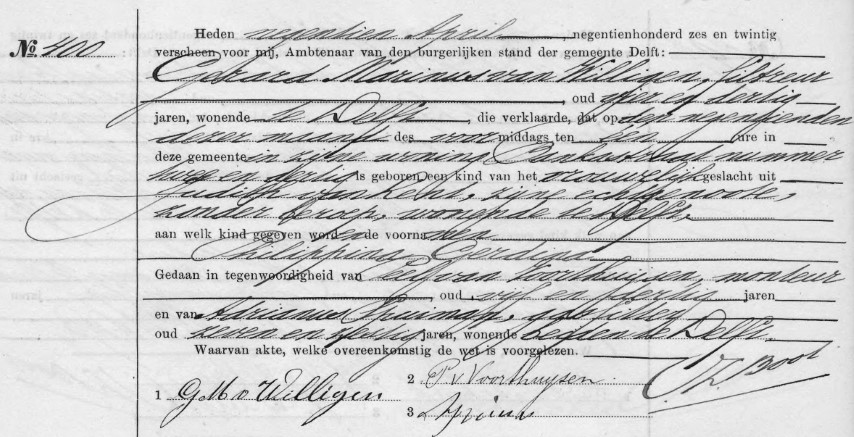 Heden negentien April negentienhonderd zes en twintig
No 400
verscheen voor mij, Ambtenaar van den burgerlijken stand der gemeente Delft:
Gerard Marinus van Willigen, filtreur
, oud vier en dertig
jaren, wonende te Delft, die verklaarde, dat op den negentienden
dezer maand des voormiddags ten een ure in
deze gemeente in zijne woning nummer
twee en dertig is geboren een kind van het vrouwelijk geslacht uit
Judith zijne echtgenoote,
zonder beroep, wonende te Delft.
aan welk kind gegeven worden de voornamen
Philippina
Gedaan in tegenwoordigheid van van Voorthuijsen, monteur
, oud vijf en veertig jaren
en van Adrianus
oud zeven en jaren, wonende beiden te Delft.
Waarvan akte, welke overeenkomstig de wet is voorgelezen.
2 P v Voorthuysen
1 G M v Willigen
3